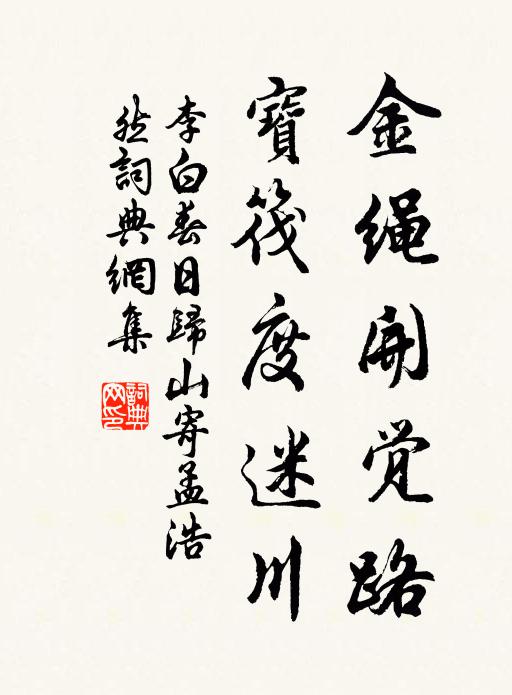 金绳開觉路
寶筏度迷川
李白春日歸山寄孟浩
然詞典網集
詞典
网印